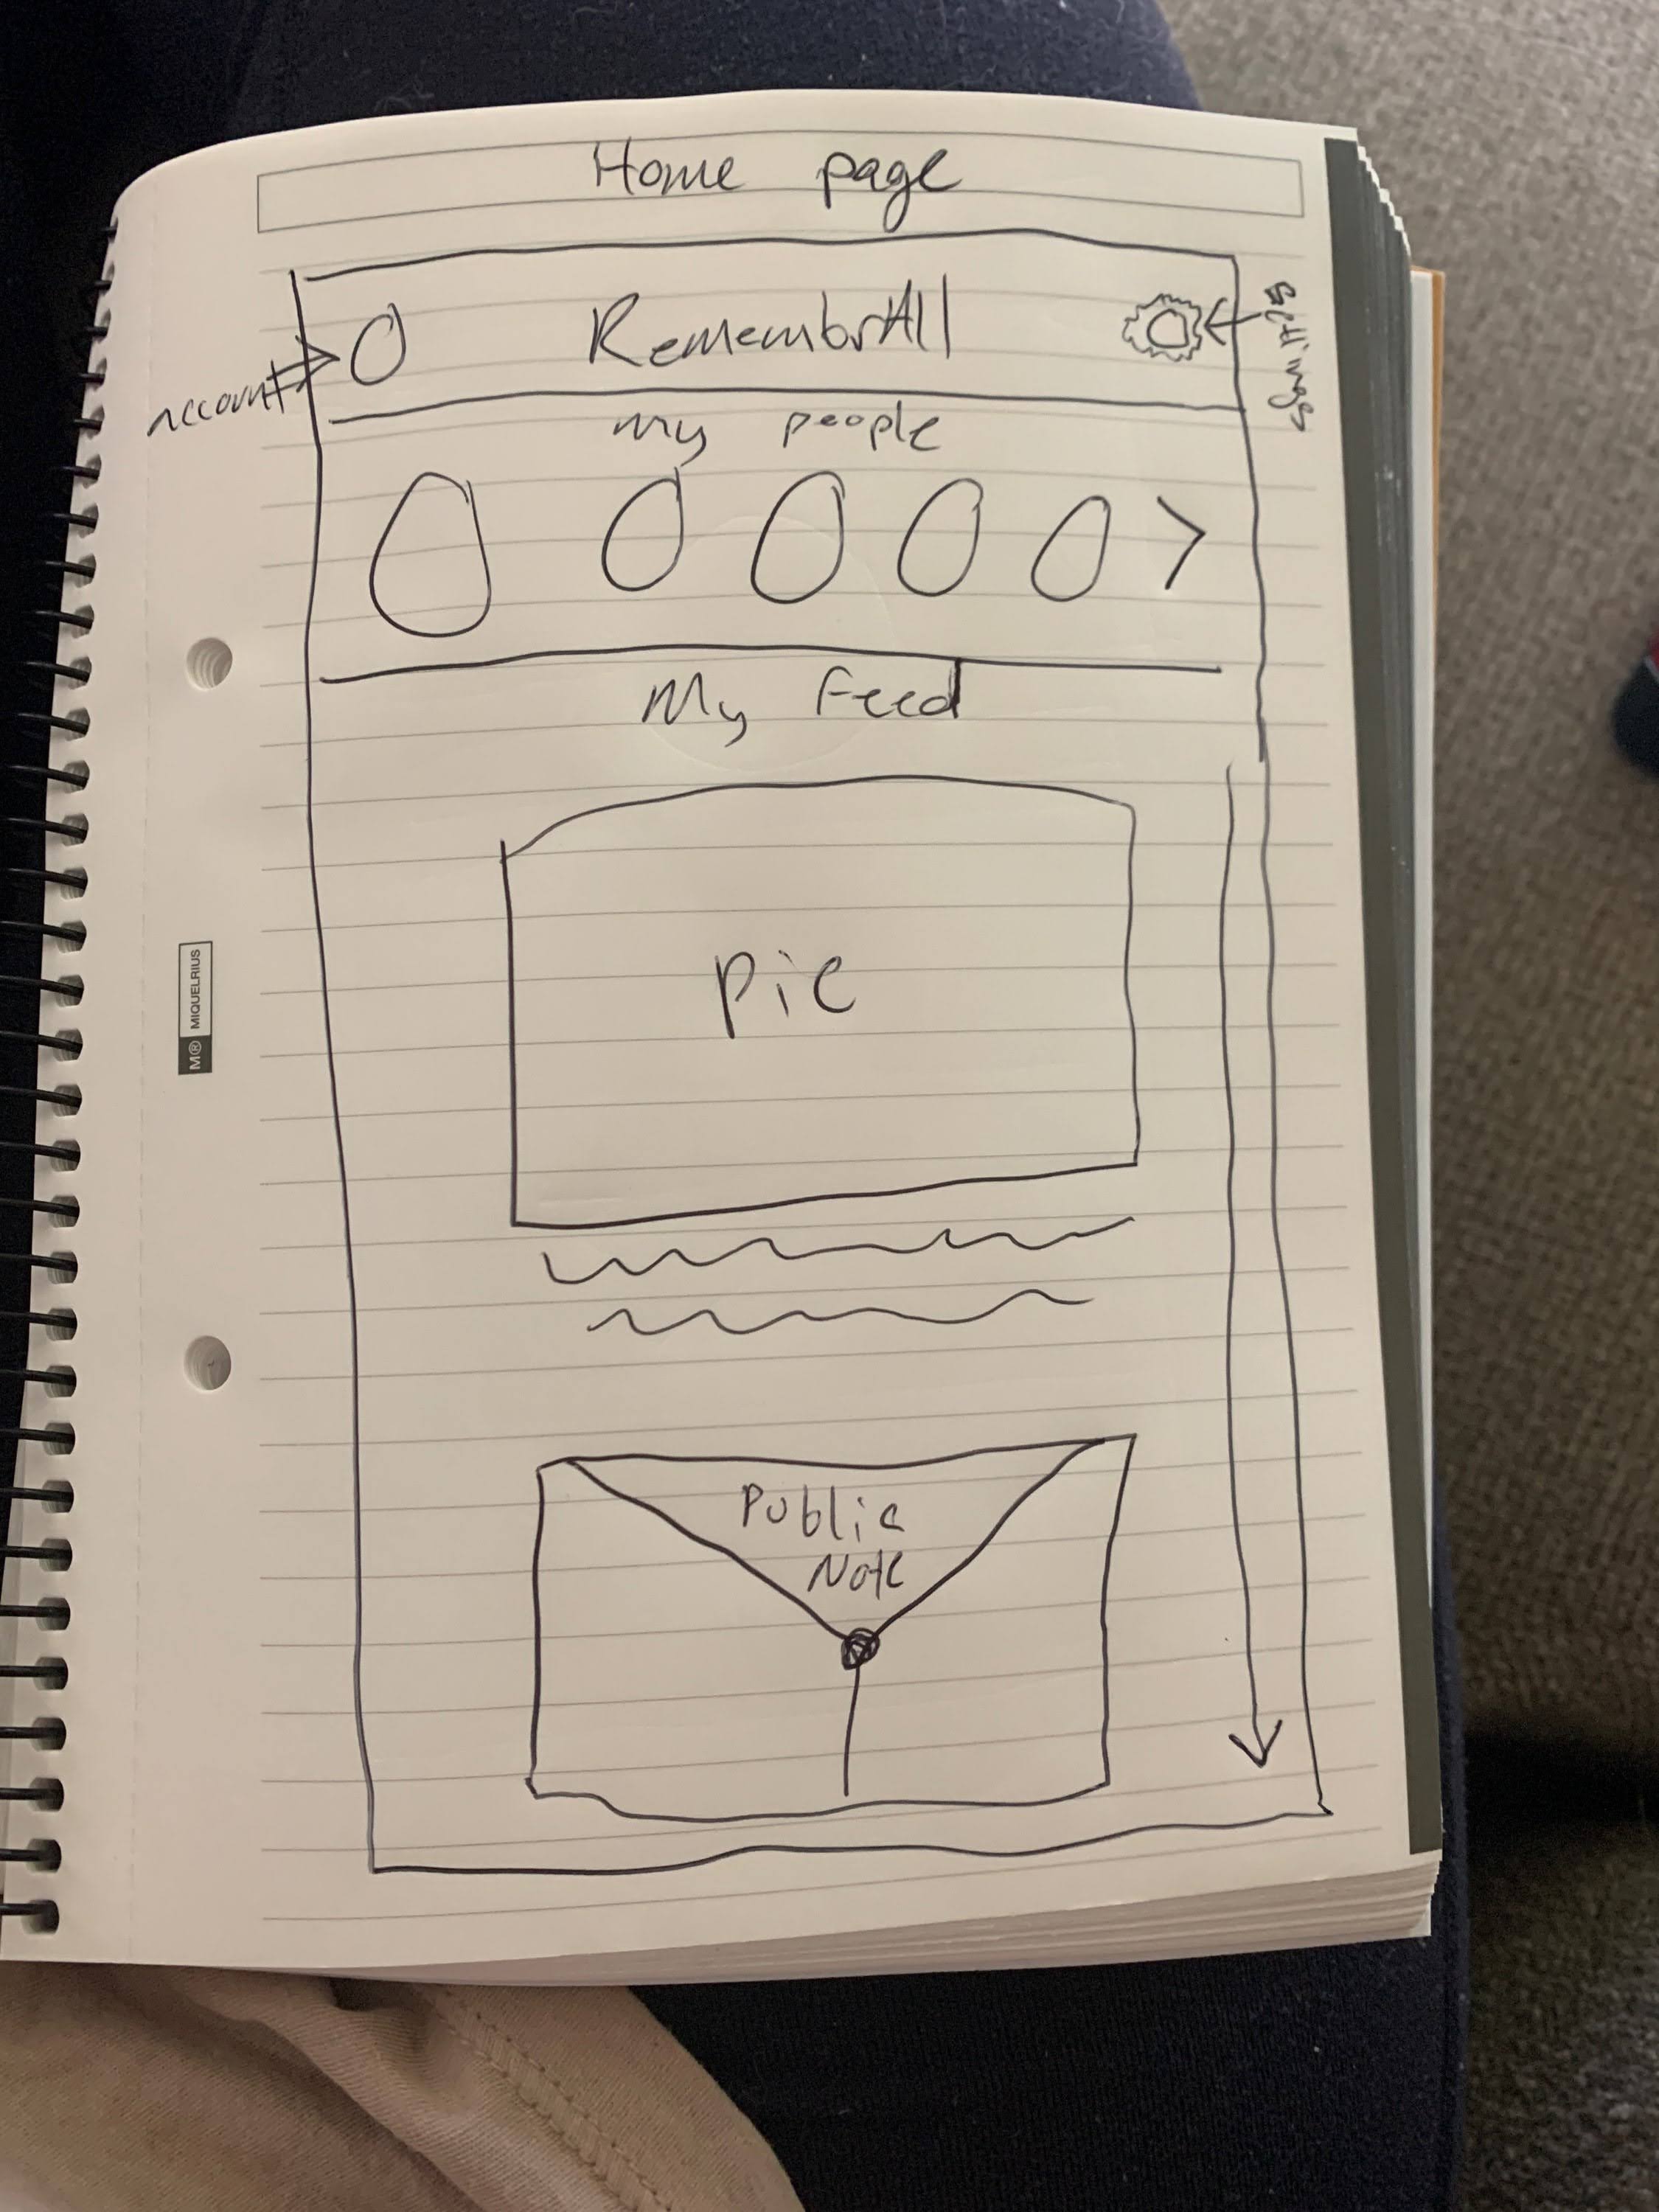 Home page
RemembrAll
account
settings
my people
My Feed
pic
Public
Note
M® MIQUELRIUS